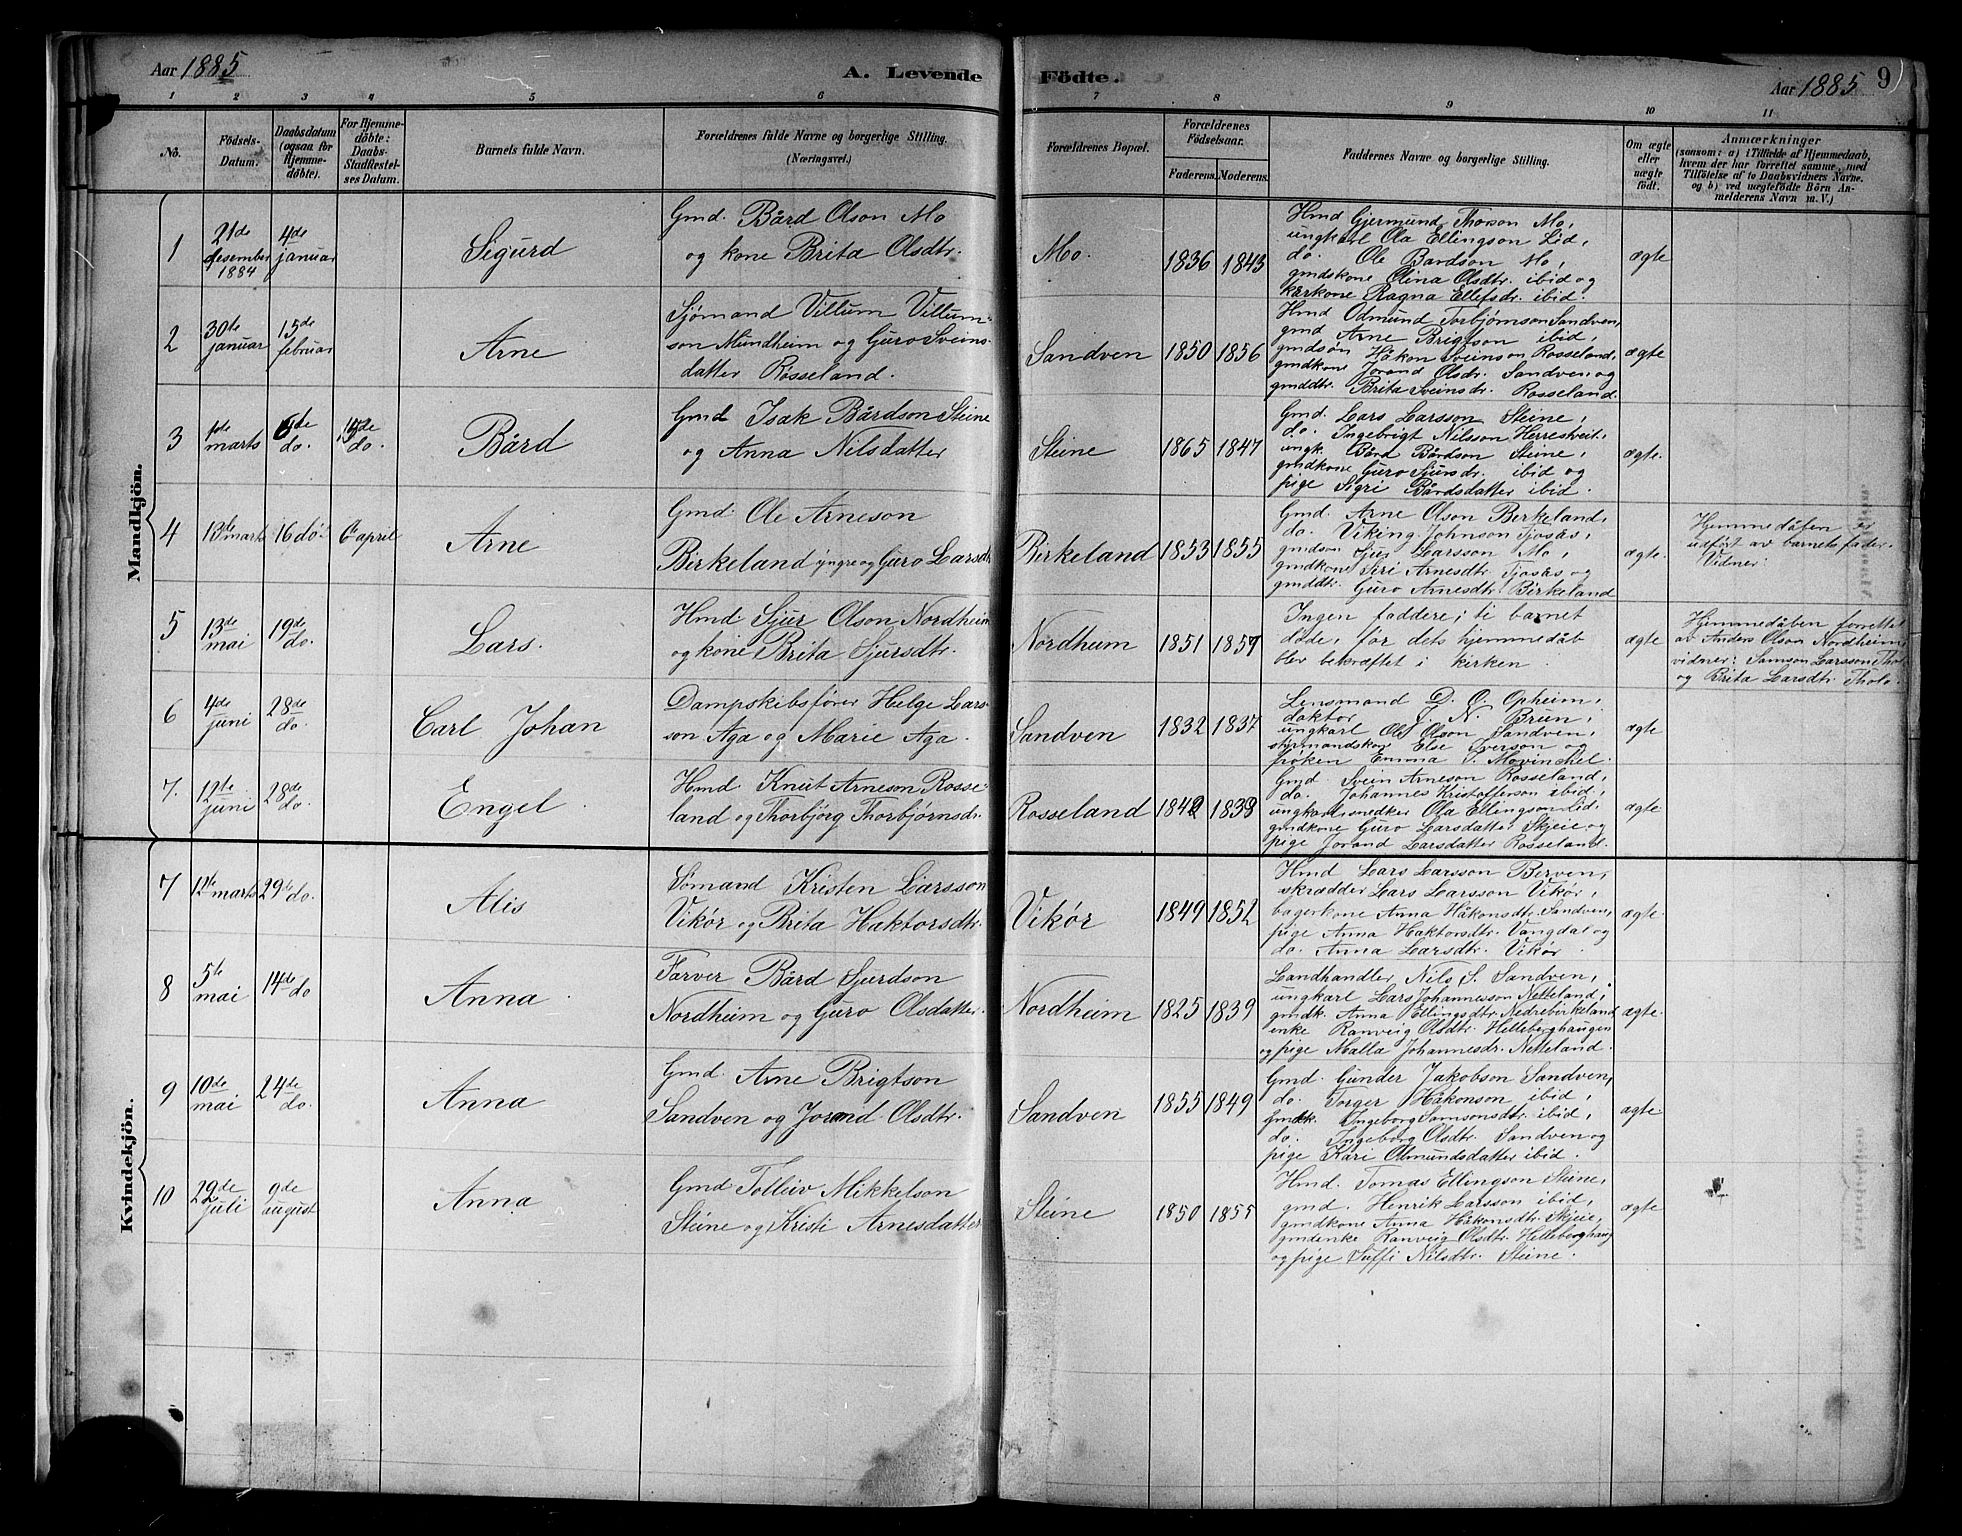 Aar 1885
A. Levende Födte.
Aar 1885
9
1 2 3 4 5 6 7 8 9 10 11
No.
Födsels-
Datum.
Daabsdatum
(ogsaa for
Hjemme-
døbte).
For Hjemme-
døbte:
Daabs-
Stadfæstel-
ses Datum.
Barnets fulde Navn.
Forældrenes fulde Navne og borgerlige Stilling.
(Næringsvei.)
Forældrenes Bopæl.
Forældrenes
Födselsaar.
Faderens. Moderens.
Faddernes Navne og borgerlige Stilling.
Om ægte
eller
uægte
født.
Anmærkninger
(saasom: a) i Tilfælde af Hjemmedaab,
hvem der har forrettet samme, med
Tilföielse af to Daabsvidners Navne.
og b) ved uægtefödte Börn An-
melderens Navn m. V.)
Mandkjön.
1
21de
desember
1884
4de
januar
Sigurd
Gmd. Bård Olson Mo
og kone Brita Olsdtr.
Mo.
1836 1843
Hmd Gjermund Thorson Mo,
ungkarl Ola Ellingson Lid,
do. Ole Bardson Mo,
gmdskone Olina Olsdtr. ibid og
kårkone Ragna Ellefsdr. ibid.
ægte
2
30te
januar
15de
februar
Arne
Sjømand Villum Villum-
son Mundheim og Guro Sveins-
datter Røsseland.
Sandven
1850 1856
Hmd Odmund Torbjørnson Sandven,
gmd Arne Brigtson ibid,
gmdsøn Håkon Sveinson Rosseland,
gmdkone Jorand Olsdr. Sandven og
gmddtr. Brita Sveinsdr. Rosseland.
ægte
3
1de
marts
6de
do.
15de
do.
Bård
Gmd Isak Bårdson Steine
og Anna Nilsdatter
Steine
1865 1847
Gmd. Lars Larsson Steine,
do. Ingebrigt Nilsson Herrestveit,
ungk. Bård Bårdson Steine,
gmdkone Guro Sjursdr. ibid og
pige Sigri Bårdsdatter ibid.
ægte.
4
13de marts
16 do.
6te april
Arne
Gmd. Ole Arneson
Birkeland yngre og Guro Larsdtr.
Birkeland
1853 1855
Gmd. Arne Olson Birkeland,
do. Viking Johnson Tjosås,
gmdson Sjur Larsson Mo,
gmdkone Siri Arnesdtr. Tjosås og
gmddtr. Guro Arnesdtr. Birkeland
ægte.
Hjemmedåben er
udført av barnets fader.
Vidner:
5
13de
mai
19de
do.
Lars.
Hmd Sjur Olson Nordheim
og kone Brita Sjursdtr.
Nordheim
1851 1857
Ingen faddere; ti barnet
døde, før dets hjemmedåb
blev bekræftet i kirken.
ægte
Hjemmedåben forrettet
av Anders Olson Nordheim,
vidner: Samson Larsson Tholo
og Brita Larsdtr. Tholo.
6
4de
juni
28de
do.
Carl Johan
Dampskibsfører Helge Lars-
son Aga og Marie Aga.
Sandven
1832 1837
Lensmand D. O. Opheim,
doktor J. N. Brun,
ungkarl Olaf Olson Sandven,
styrmandskone Else Iverson og
frøken Emma T. Mowinchel.
ægte
7.
12te
juni
28de
do.
Engel.
Hmd Knut Arneson Rosse-
land og Thorbjørg Thorbjørnsdr.
Rosseland
1842 1838
Gmd. Svein Arneson Rosseland,
do. Johannes Kristofferson ibid,
ungkarl snedker Ola Ellingson Lid,
gmdkone Guro Larsdatter Skjeie og
pige Jorand Larsdatter Rosseland.
ægte
Kvindekjön.
7
12te marts
29de do.
Alis
Sømand Kristen Larsson
Vikør og Brita Haktorsdtr.
Vikør
1849 1852
Hmd Lars Larsson Berven,
skrædder Lars Larsson Vikør,
bagerkone Anna Håkonsdtr. Sandven,
pige Anna Haktorsdtr. Vangdal og
do. Anna Larsdtr. Vikør
ægte.
8
5te
mai
14de do
Anna.
Farver Bård Sjurdson
Nordheim og Guro Olsdatter.
Nordheim
1825 1839
Landhandler Nils S. Sandven,
ungkarl Lars Johannesson Netteland,
gmdk. Anna Ellingsdtr. Nedrebirkeland
enke Ranveig Olsdtr. Helleberghaugen
og pige Malla Johannesdr. Netteland.
ægte.
9
10de
mai
24de
do.
Anna
Gmd. Arne Brigtson
Sandven og Jorand Olsdtr.
Sandven
1855 1849
Gmd. Gunder Jakobson Sandven,
do. Torger Håkonson ibid,
gmdk. Ingeborg Samsonsdtr. ibid,
do. Ingeborg Olsdtr. Sandven og
pige Kari Odmundsdatter ibid.
ægte.
10
29de
juli
9de
august
Anna
Gmd Tolleiv Mikkelson
Steine og Kristi Arnesdatter
Steine
1850 1855
Hmd. Tomas Ellingson Steine,
gmd. Henrik Larsson ibid,
gmdkone Anna Håkonsdtr. Skjeie,
gmdenke Ranveig Olsdtr. Helleberghaug
og pige Siffi Nilsdtr. Steine.
ægte